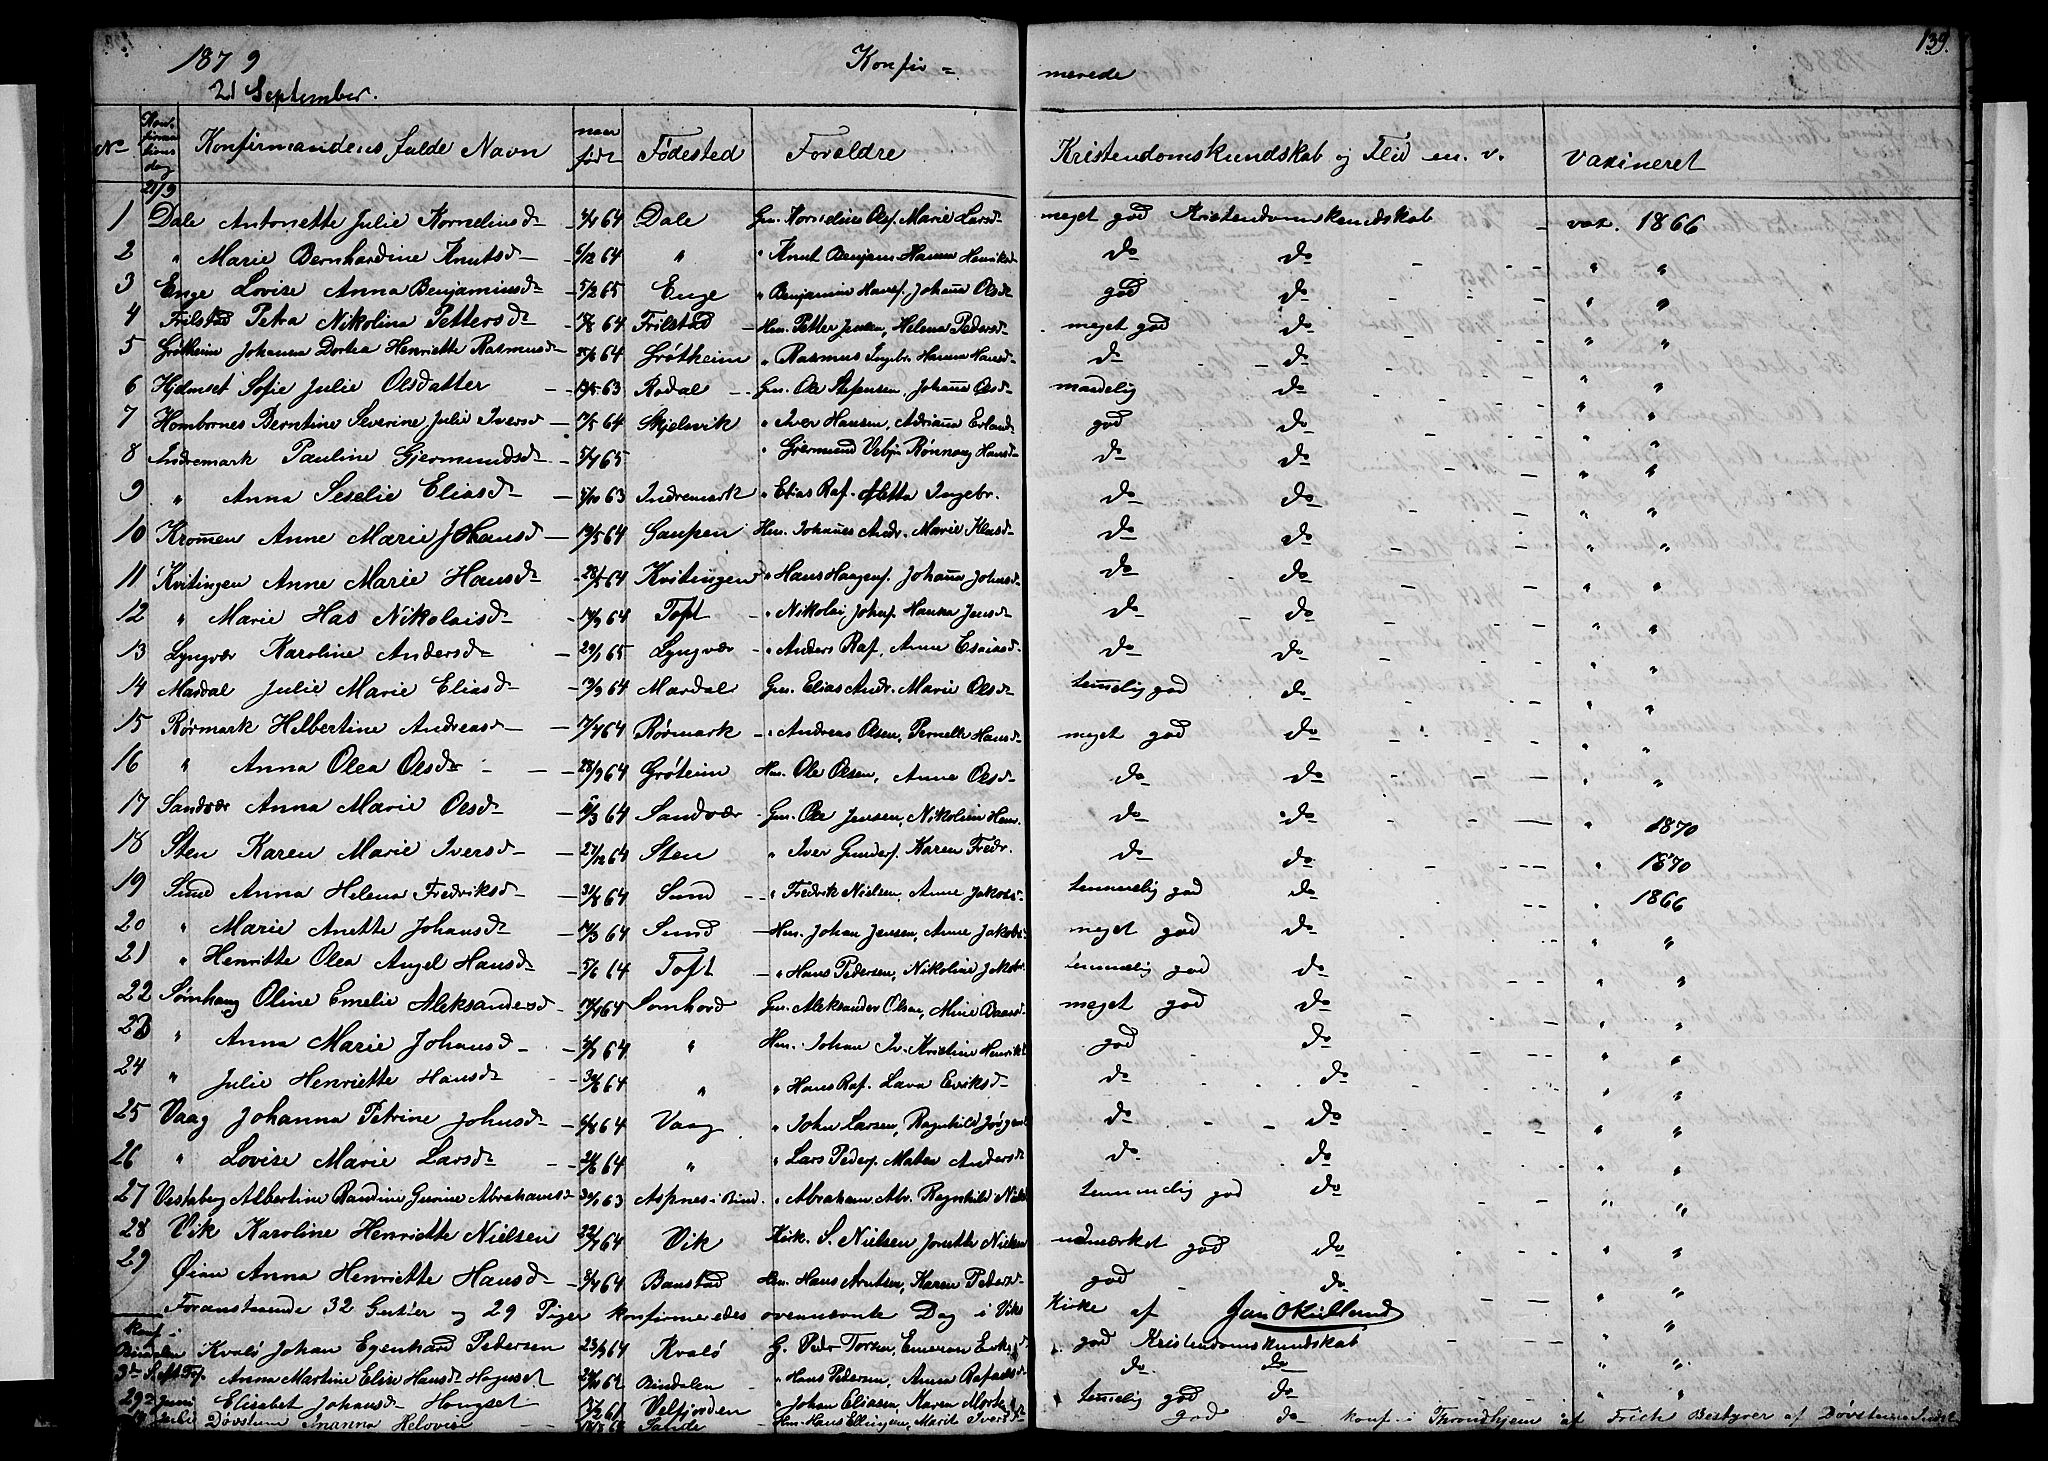 1879 Konfir = merede 139.
21 September.
No Konfirmandens fulde Navn naar født Fødested Forældre Kristendomskundskab og Flid en. v. vaxineret
21/9
1 Dale Antonette Julie Kornelius d 64 Dale Gm. Kornelius Olsf. Marie Larsd meget god Kristendomskundskab vax. 1866
2 " Marie Bernhardine Knutsd 6/12 64 " " Knut Benjam. Hanna Henriksd do do " "
3 Enge Lovise Anna Benjaminsd 5/2 65 Enge " Benjamin Hansf. Johaña Olsd god do " "
4 Frilstad Petra Nikolina Pettersd 64 Frilstad Hm. Petter Jensen, Helena Pedersd meget god do " "
5 Grøtheim Johanna Dortea Henriette Rasmusd 64 Grøtheim " Rasmus Ingebr. Hanna Hansd do do " "
6 Hjelmset Sofie Julie Olsdatter 63 Rodal Gm. Ole Stefensen, Johaña Olsd maadelig do " "
7 Hombornes Berntine Severine Julie Iversd 17/5 64 Skjelsvik " Iver Hansen, Adriaña Erland god do " "
8 Indremark Pauline Gjermundsd 5/4 65 " Gjermund Vebjø. Rønnaug Hansd do do " "
9 " Anna Seselie Eliasd 63 Indremark " Elias Raf. Aletta Ingebr. do do " "
10 Kromen Anne Marie Johansd 19/5 64 Gaupen Hm. Johañes Andr. Marie Klasd do do " "
11 Kvitingen Anne Marie Hansd 64 Kvitingen " Hans Haagenf. Johaña Johnsd do do " "
12 " Marie Has Nikolaisd 14/9 64 Toft " Nikolai Johnf. Hanna Jensd do do " "
13 Lyngvær Karoline Andersd 29/1 65 Lyngvær " Anders Raf. Anne Esaiasd do do " "
14 Mardal Julie Marie Eliasd 19/9 64 Mardal Gm. Elias Andr. Marie Olsd temelig god do " "
15 Rørmark Helbertine Andreasd 17/4 64 Rørmark " Andreas Olsen, Pernelle Hansd meget god do " "
16 " Anna Olea Olsdr 28/9 64 Grøteim Hm. Ole Olsen, Anne Olsd do do " "
17 Sandvær Anna Marie Olsd 64 Sandvær Gm. Ole Jensen, Nikoline Hem. do do " 1870
18 Sten Karen Marie Iversd 27/12 64 Sten " Iver Gundersf. Karen Fredr. do do " 1870
19 Sund Anna Helena Fredriksd 64 Sund " Fredrik Nielsen, Anne Jakobs temmelig god do " 1866
20 " Marie Anette Johansd 64 Sund Hm. Johan Jensen, Anne Jakobs meget god do " "
21 " Henritte Olea Angel Hansd 5/6 64 Toft " Hans Pedersen, Nikoline Jakobs temmelig god do " "
22 Sømhaug Oline Emelie Aleksandersd 64 Somhovd Gm. Aleksander Olsen, Mine Baards meget god do " "
23 " Anna Marie Johansd 64 " Hm. Johan Iv. Kristine Henrikd god do " "
24 " Julie Henriette Hansd 64 " " Hans Raf. Lava Eriksd do do " "
25 Vaag Johanna Petrine Johnsd 64 Vaag " John Larsen, Ragnhild Jørgen do do " "
26 " Lovise Marie Larsd 64 " " Lars Pedersf. Maten Andersd do do " "
27 Vestaberg Albertine Randine Gurine Abrahamsd 63 Aspnes i Bind. " Abraham Abr. Ragnhild Niels temmelig god do " "
28 Vik Karoline Henriette Nielsen 64 Vik Kirk. S. Nielsen Jonette Nielsen udmærket god do " "
29 Øien Anna Henriette Hansd 64 Baustad Hm. Hans Arntsen, Karen Pedersd god do " "
Foranstaaende 32 Gutter og 29 Piger konfirmeredes ovennævnte Dag i Viks Kirke af Jan O Kielland
konf. i Bindalen Kvalø Johan Egenhard Pedersen 64 Kvalø G. Peder Torsen, Emerense god Kristendomskundskab " "
Anna Martine Elise Hansd Hegnset Bindalen " Hans Pedersen, Anna Rafaelsd do do " "
29 Juni Elisabet Johansd Hongset 61 Velfjorden " Johan Eliasen Karen temelig god do
Døvstum Inanna Helovise Salsde Hm. Hans Ellingsen, Marit Iversd god do konf. i Throndhjem af Frich Bestyrer af Døvstumme